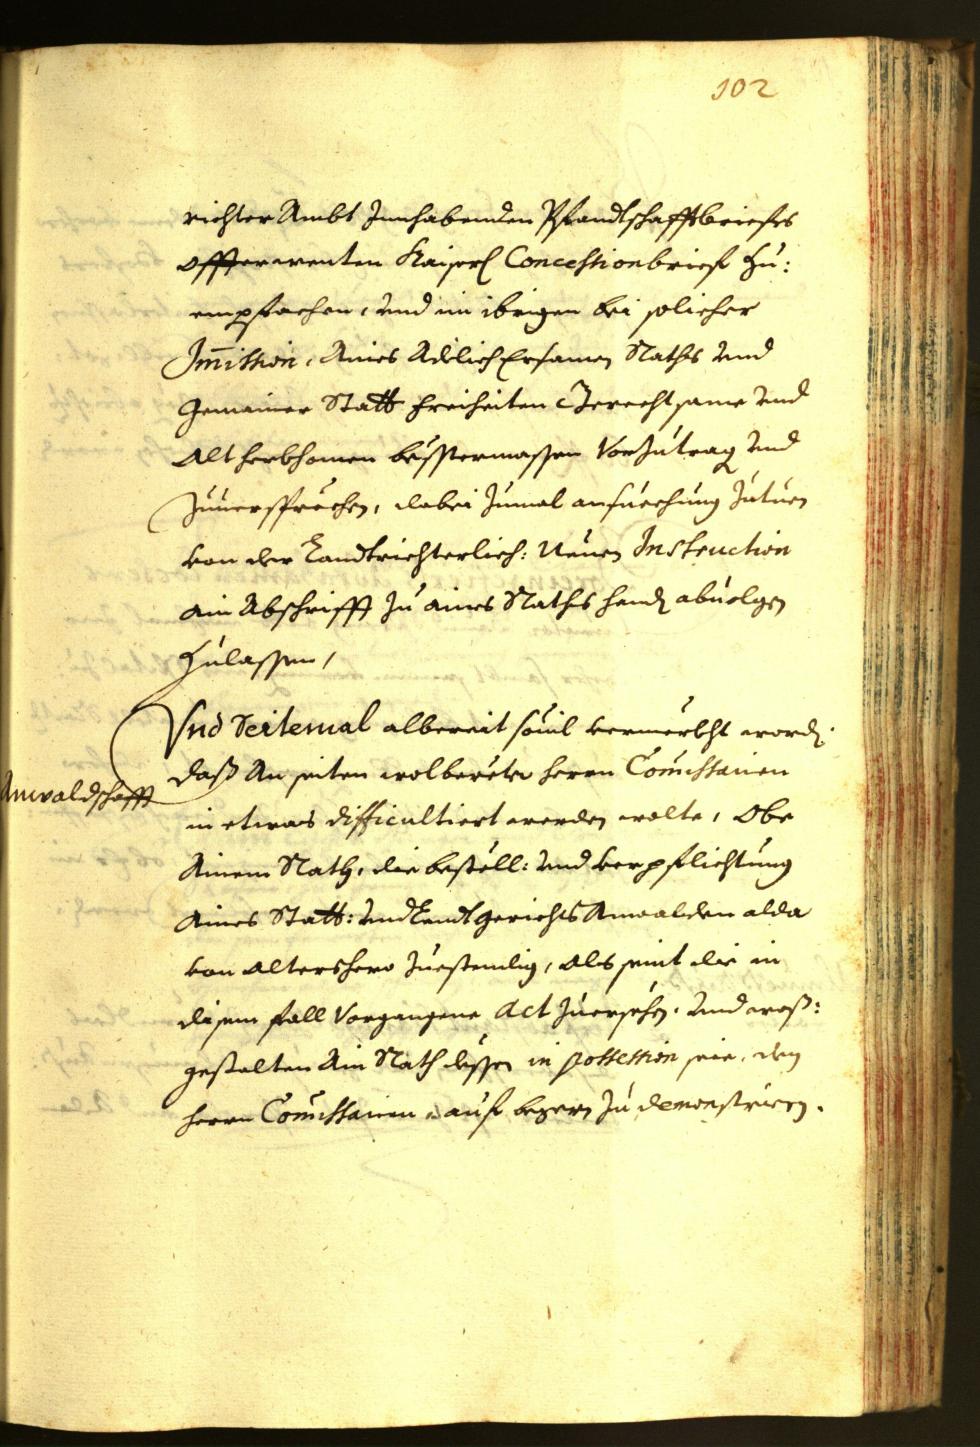 102
richter Ambt Innhabenden Pfandtschafftbriefs
offterwenten Kaiserl Concessionbrief zu:
empfachen, vnd im ibrigen bei solicher
Im̄ission, Aines Adelich Ersamen Raths vnd
Gemainer Statt freiheiten Gerechtsame vnd
Alt herkhomen bösstermassen Vorzutrag vnd
zuuersprechen, dabei zumal ansuechung zutuen
von der Landtrichterlich: Neuen Instruction
ain Abschrifft zu aines Raths hand abuolgen
zulassen,
Vnd Seitemal albereit souil vermerkht word:
Anwaldschafft
daß An seiten wolberuter herrn Com̄issarien
in etwas difficultiert werden wolte, Obe
Ainem Rath, die bestöll: vnd verpflichtung
Aines Statt: vnd Landtgerichts Anwalden alda
von Altershero zuestendig, Als seint die in
disem fall Vorgangene Act zuersehen, vnd waß:
gestalten Ain Rath dessen in possession seie, den
herrn Com̄issarien auf begern zu demonstriern.